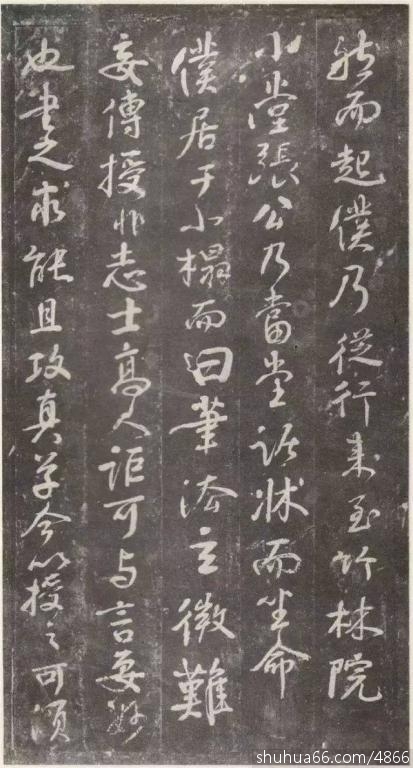 然而起僕乃從行来至竹林院
小堂張公乃當堂踞牀而坐命
僕居于小榻而曰筆法玄微難
妄傳授非志士高人詎可与言要妙
也書之求能且攻真草今以授之可須
shuhua66.com/4866